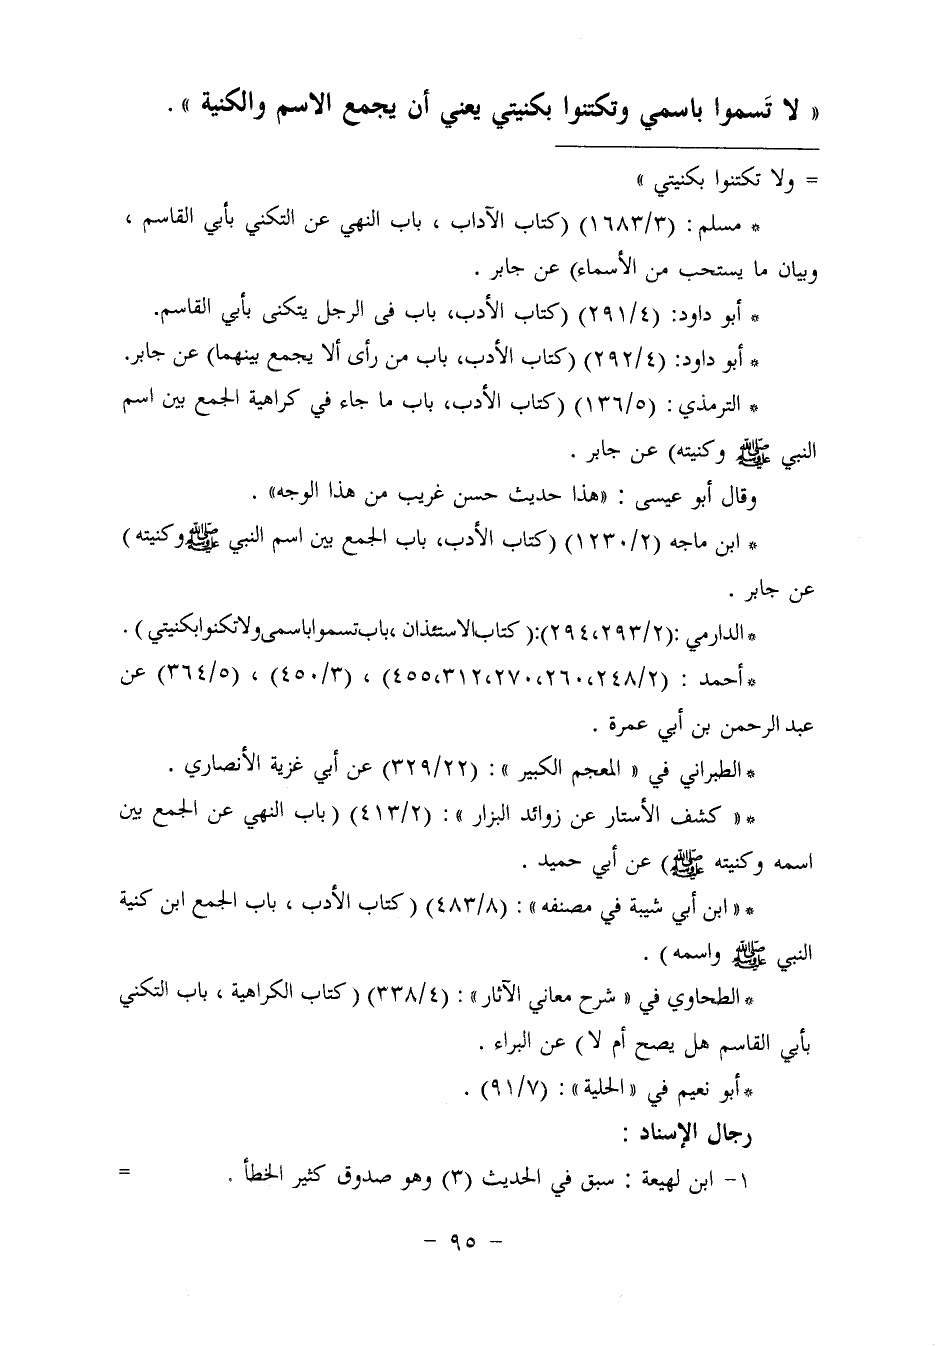 « لا تَسموا باسمي وتكتنوا بكنيتي يعني أن يجمع الاسم والكنية » .
= ولا تكتنوا بكنيتي »
* مسلم : (١٦٨٣/٣) (كتاب الآداب ، باب النهي عن التكني بأبي القاسم ،
وبيان ما يستحب من الأسماء) عن جابر .
* أبو داود: (٢٩١/٤) (كتاب الأدب، باب فى الرجل يتكنى بأبي القاسم.
* أبو داود: (٢٩٢/٤) (كتاب الأدب، باب من رأى ألا يجمع بينهما) عن جابر.
* الترمذي : (١٣٦/٥) (كتاب الأدب، باب ما جاء في كراهية الجمع بين اسم
النبي ﷺ وكنيته) عن جابر .
وقال أبو عيسى : «هذا حديث حسن غريب من هذا الوجه» .
* ابن ماجه (١٢٣٠/٢) (كتاب الأدب، باب الجمع بين اسم النبي ﷺ وكنيته )
عن جابر .
*الدارمي :(٢٩٤،٢٩٣/٢):( كتاب الاستئذان ،باب تسموا باسمى ولا تكنوا بكنيتي ) .
*أحمد : (٤٥٥،٣١٢،٢٧٠،٢٦٠،٢٤٨/٢) ، (٤٥٠/٣) ، (٣٦٤/٥) عن
عبد الرحمن بن أبي عمرة .
*الطبراني في « المعجم الكبير » : (٣٢٩/٢٢) عن أبي غزية الأنصاري .
*« كشف الأستار عن زوائد البزار » : (٤١٣/٢) ( باب النهي عن الجمع بين
اسمه وكنيته ﷺ) عن أبي حميد .
*«ابن أبي شيبة في مصنفه» : (٤٨٣/٨) ( كتاب الأدب ، باب الجمع ابن كنية
النبي ﷺ واسمه ) .
*الطحاوي في « شرح معاني الآثار» : (٣٣٨/٤) ( كتاب الكراهية ، باب التكني
بأبي القاسم هل يصح أم لا ) عن البراء .
*أبو نعيم في «الحلية» : (٩١/٧) .
رجال الإسناد :
١- ابن لهيعة : سبق في الحديث (٣) وهو صدوق كثير الخطأ . =
- ٩٥ -